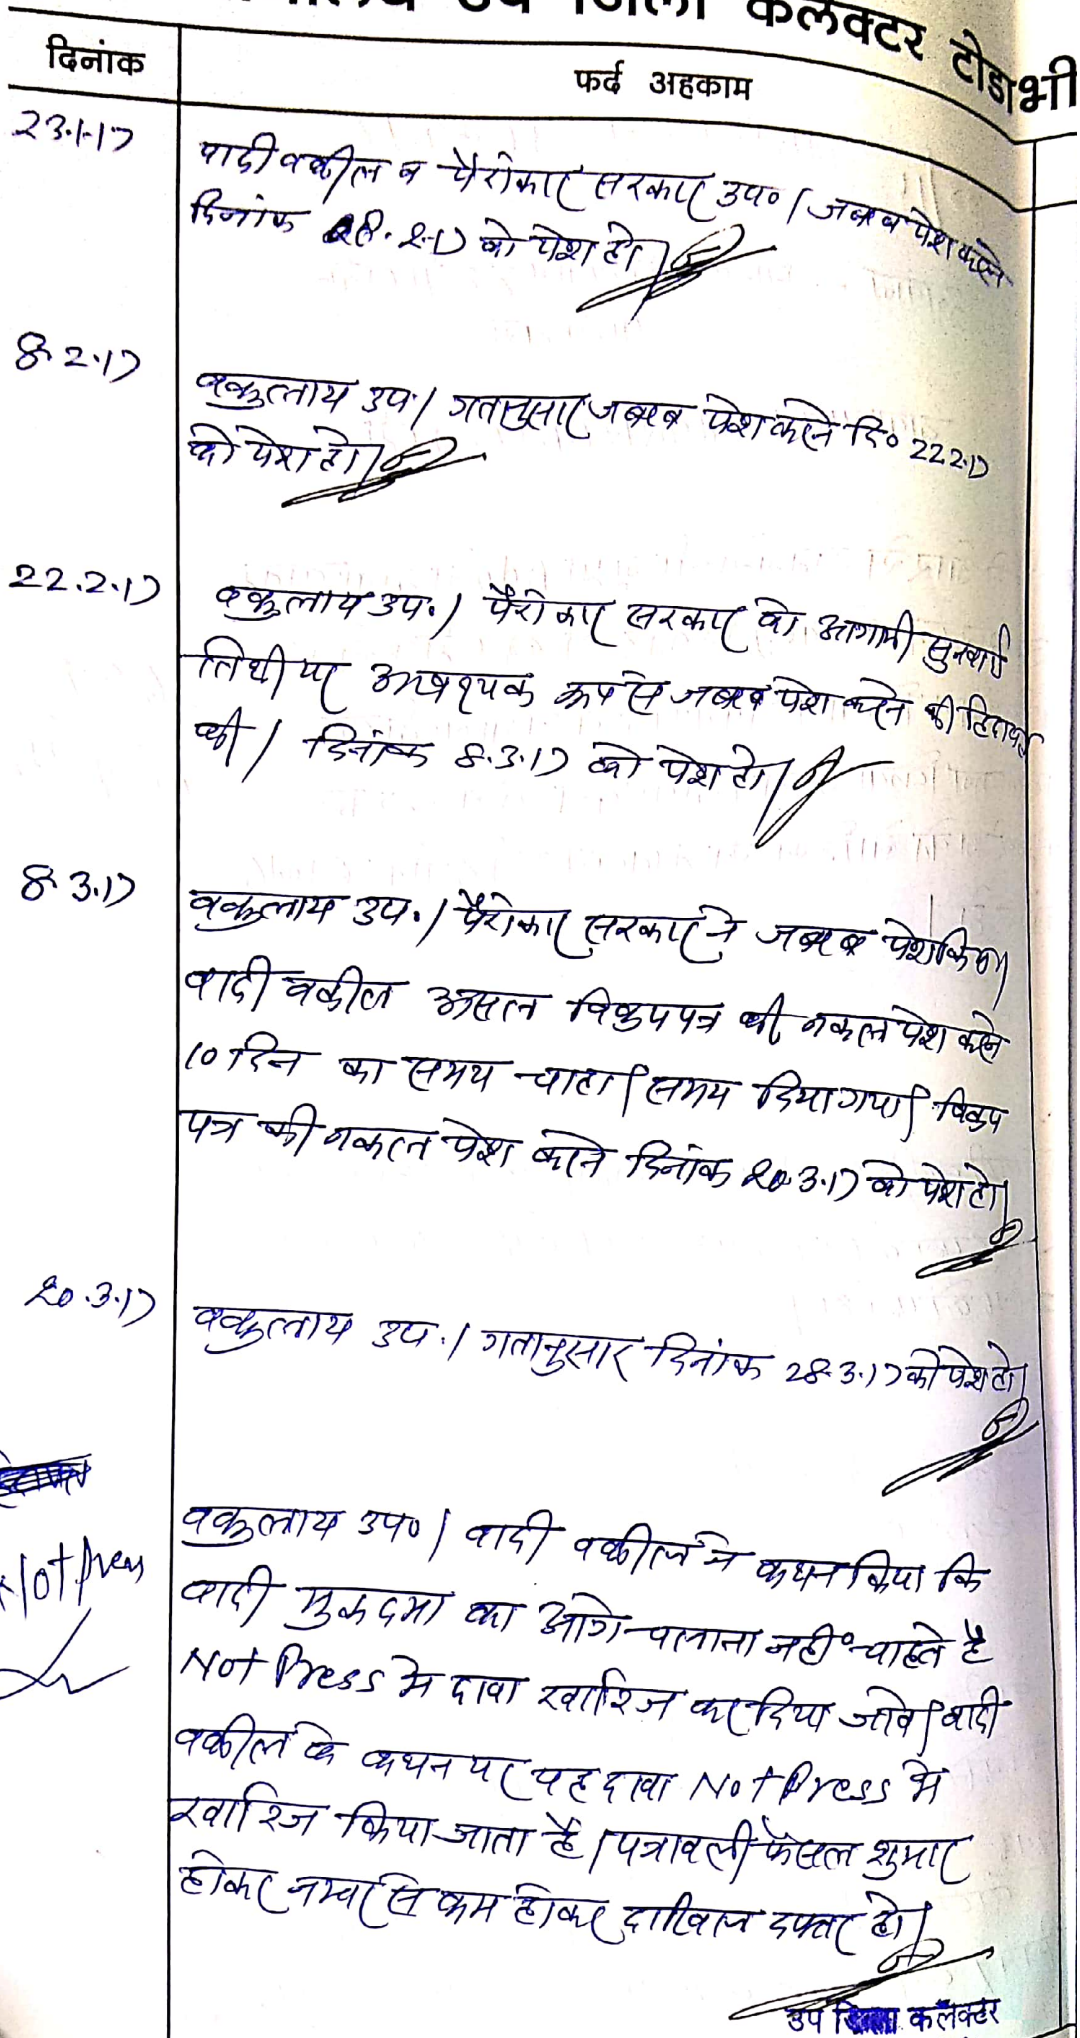 उप जिला कलेक्टर टोडाभी
दिनांक
फर्द अहकाम
23.1.17
वादी वकील व पैरोकार सरकार उप० / जबाव पेश करने
दिनांक 8.2.17 को पेश हो।
8.2.17
वकुलाय उप. / गतानुसार जबाब पेश करने दि० 22.2.17
को पेश हो।
22.2.17
वकुलाय उप. / पैरोकार सरकार को आगामी सुनवाई
तिथी पर आवश्यक रूप से जबाव पेश करने की हिदायत
की / दिनांक 8.3.17 को पेश हो।
8.3.17
वकुलाय उप. / पैरोकार सरकार ने जबाब पेश किया
वादी वकील असल विक्रय पत्र की नकल पेश करने
10 दिन का समय चाहा। समय दिया गया। विक्रय
पत्र की नकल पेश करने दिनांक 20.3.17 को पेश हो।
20.3.17
वकुलाय उप. / गतानुसार दिनांक 28.3.17 को पेश हो।
Not press
वकुलाय उप० / वादी वकील ने कथन किया कि
वादी मुकदमा का आगे चलाना नहीं चाहते है
Not Press मे दावा खारिज कर दिया जावे। वादी
वकील के कथन पर यह दावा Not Press मे
खारिज किया जाता है। पत्रावली फैसल शुमार
होकर नम्बर से कम होकर दाखिल दफ्तर हो।
उप जिला कलेक्टर